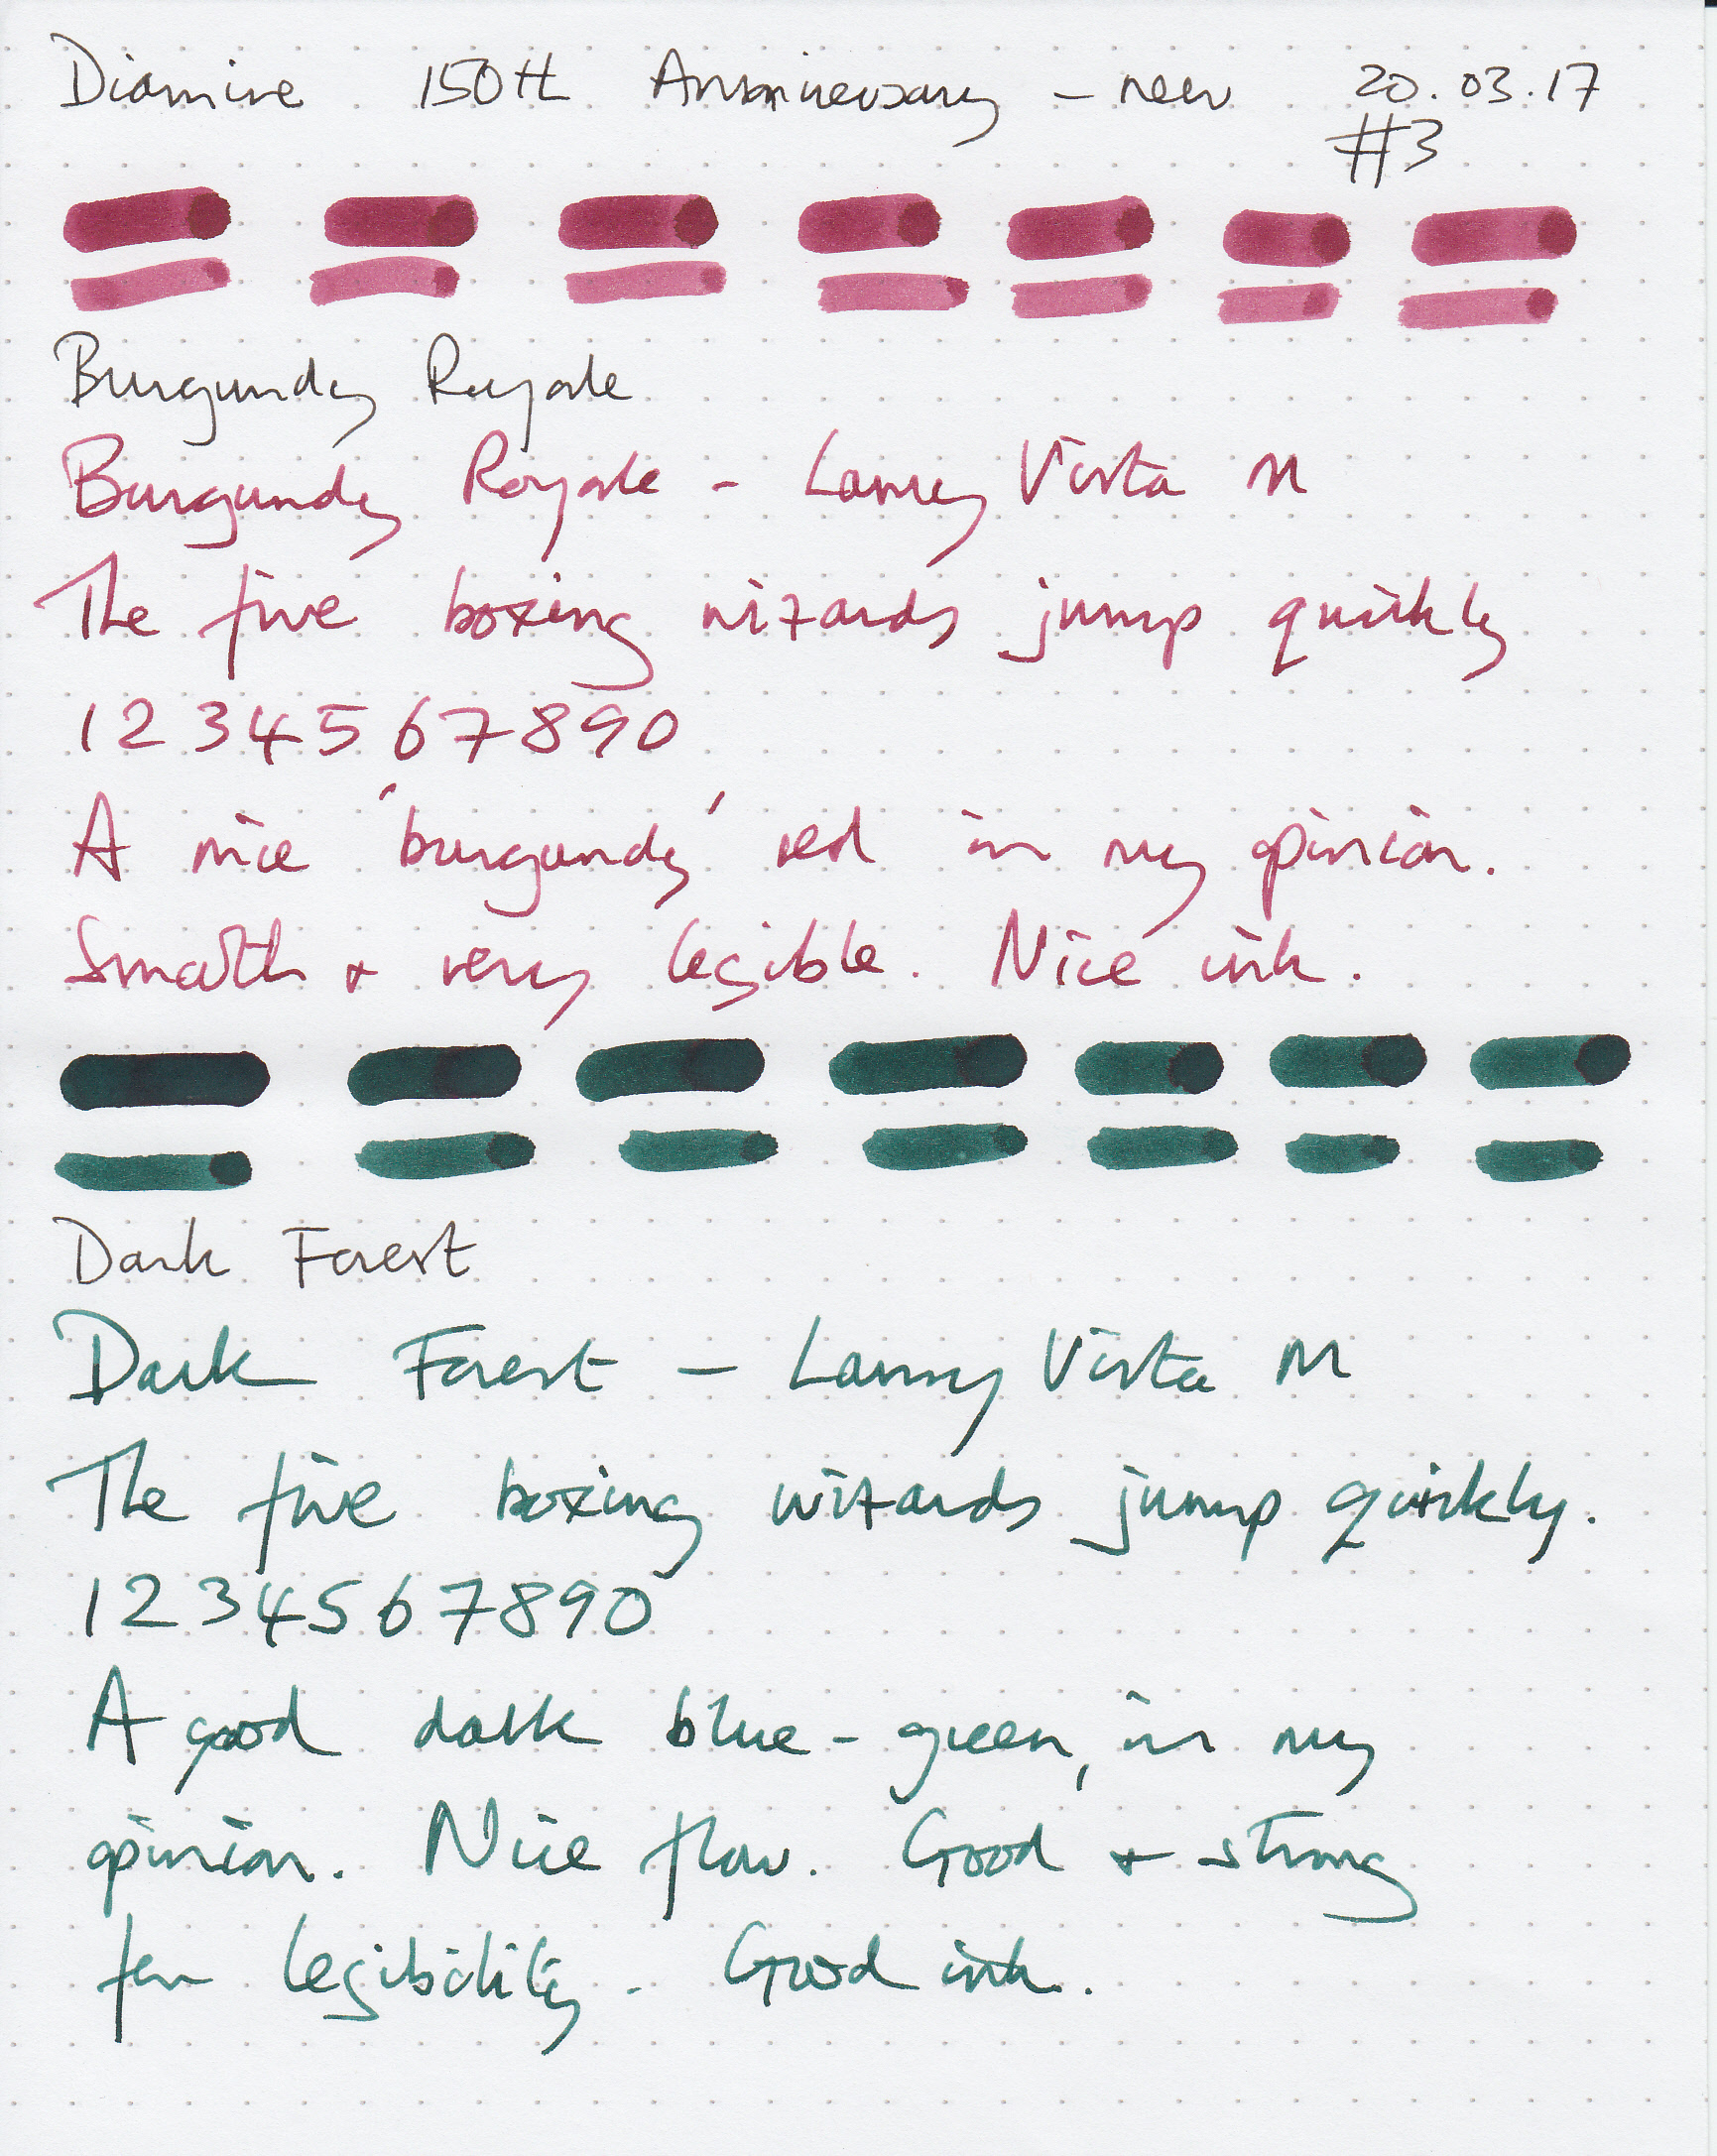 Diamine 150th Anniversary - new 20.03.17
#3
Burgundy Royale
Burgundy Royale - Lamy Vista M
The five boxing wizards jump quickly
1234567890
A nice 'burgundy' red in my opinion.
Smooth + very legible. Nice ink.
Dark Forest
Dark Forest - Lamy Vista M
The five boxing wizards jump quickly.
1234567890
A good dark blue-green, in my
opinion. Nice flow. Good + strong
for legibility. Good ink.